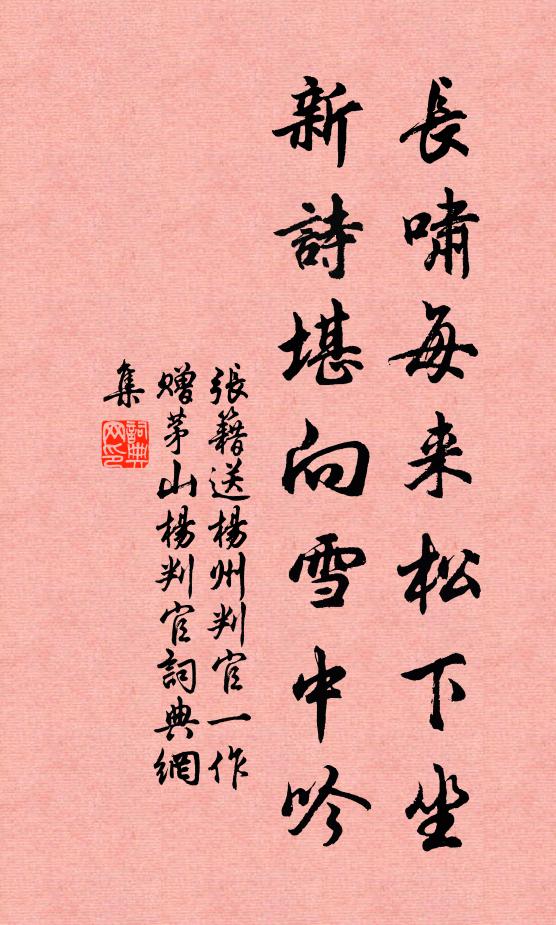 長嘯每来松下坐
新詩堪向雪中吟
張籍送楊州判官一作
贈茅山楊判官詞典網
集
詞典
网印